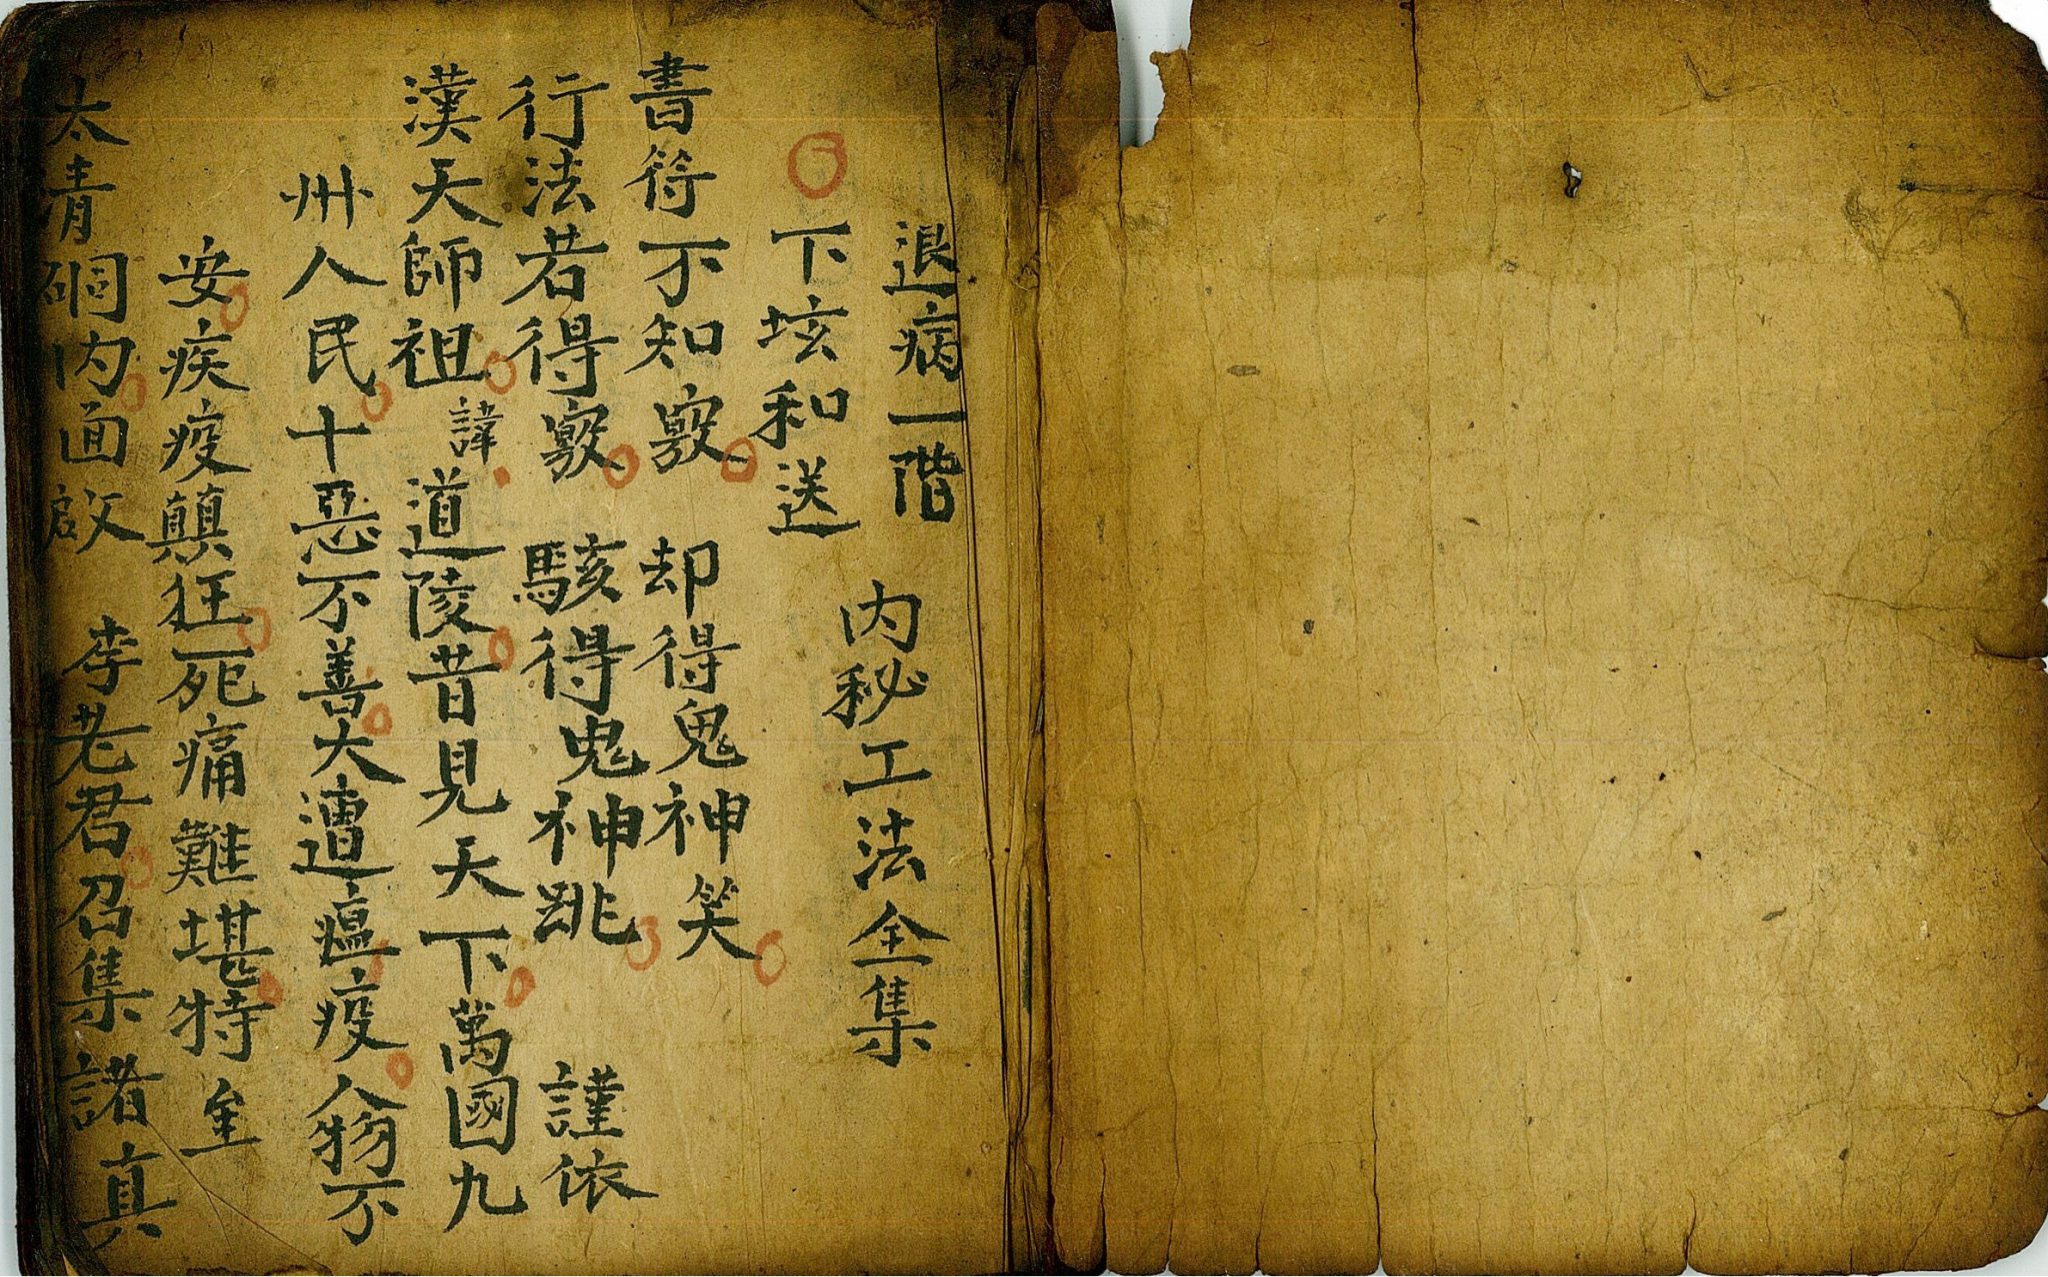 退病一階
内秘工法全集
下垓和送
書符不知竅　却得鬼神笑
行法若得竅　駭得鬼神跳　謹依
漢天師祖諱道陵昔見天下萬國九
州人民十惡不善大遭瘟疫人物不
安疾疫顛狂死痛難堪特至
太青硐内面啟　李老君召集諸真